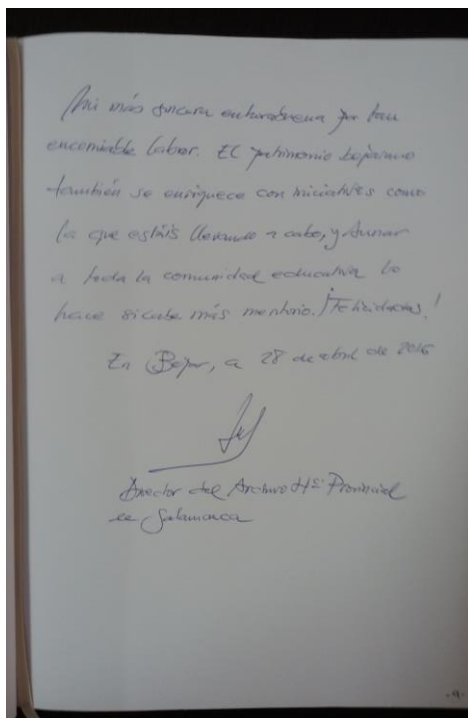 Mi más sincera enhorabuena por tan
encomiable labor. El patrimonio bejarano
también se enriquece con iniciativas como
la que estáis llevando a cabo, y aunar
a toda la comunidad educativa lo
hace si cabe más meritorio. ¡Felicidades!
En Béjar, a 28 de abril de 2016
Director del Archivo Hº Provincial
de Salamanca
.9.